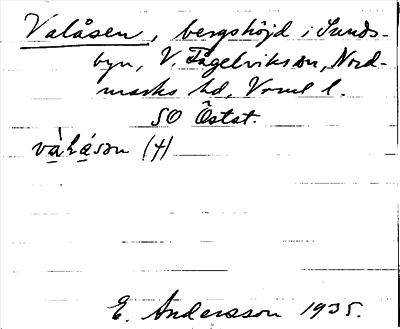 Valåsen, bergshöjd i Sunds-
byn, V. Fågelviks sn, Nord-
marks hd, Vrml l.
SO Östat.
våḷåsən (4)
E. Andersson 1935.